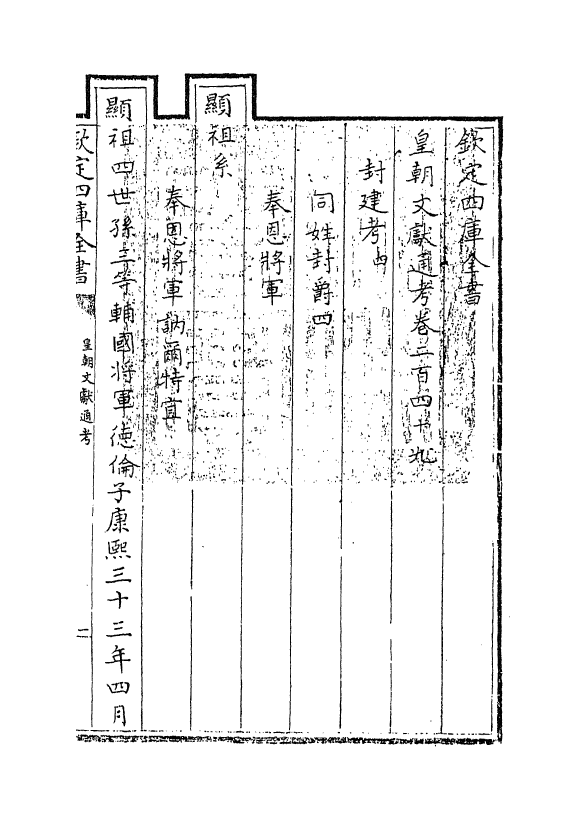 欽定四庫全書
皇朝文獻通考卷二百四十九
封建考四
同姓封爵四
奉恩將軍
顯祖系
奉恩將軍訥爾特宜
顯祖四世孫三等輔國將軍德倫子康熙三十三年四月
欽定四庫全書
皇朝文獻通考